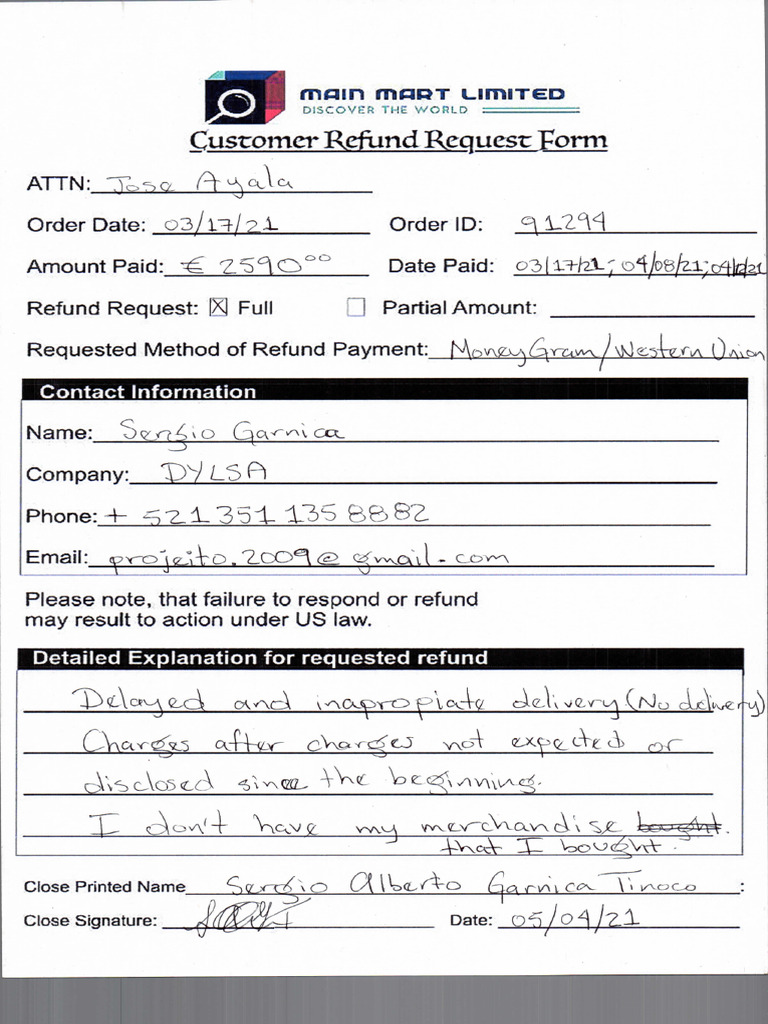 MAIN MART LIMITED
DISCOVER THE WORLD
Customer Refund Request Form
ATTN: Jose Ayala
Order Date: 03/17/21 Order ID: 91294
Amount Paid: € 2590.00 Date Paid: 03/17/21; 04/08/21; 04/12/21
Refund Request: ☒ Full ☐ Partial Amount:
Requested Method of Refund Payment: MoneyGram/Western Union
Contact Information
Name: Sergio Garnica
Company: DYLSA
Phone: + 521 351 135 8882
Email: projeito.2009@gmail.com
Please note, that failure to respond or refund
may result to action under US law.
Detailed Explanation for requested refund
Delayed and inapropiate delivery (No delivery)
Charges after charges not expected or
disclosed since the beginning.
I don't have my merchandise bought.
that I bought.
Close Printed Name Sergio Alberto Garnica Tinoco :
Close Signature: Date: 05/04/21